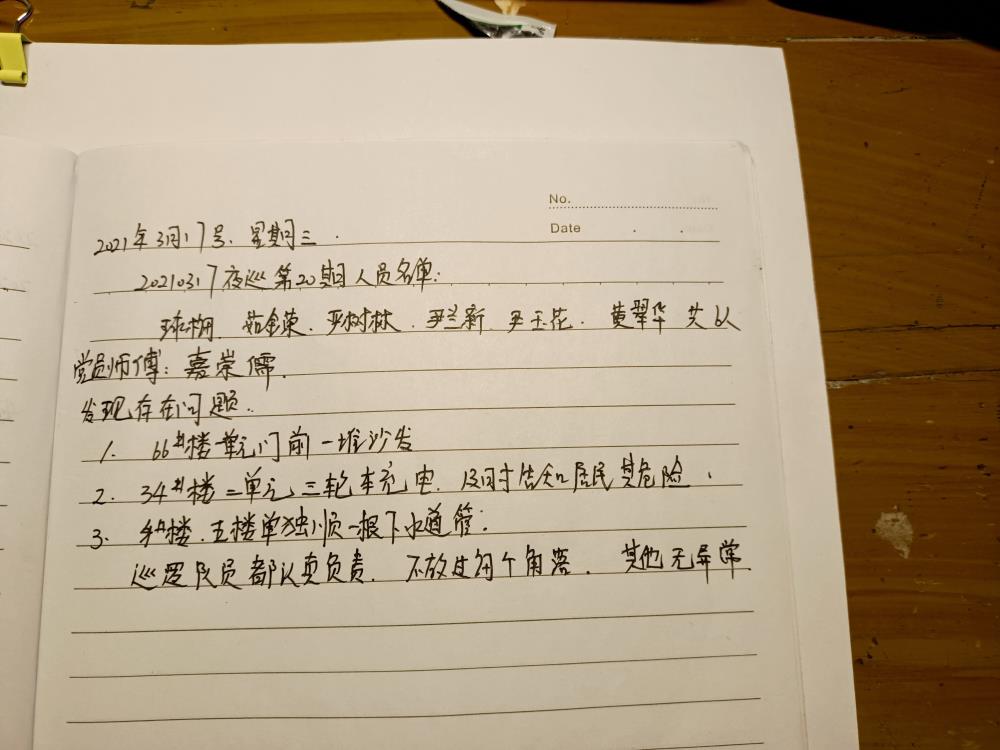 No.
Date
2021年3月17号、星期三.
20210317夜巡第20期人员名单:
茹金荣、尹树林、尹兰新、尹玉花、黄翠华 共以
党员师傅:嘉崇儒.
发现存在问题.
1. 66#楼一单元门前一堆沙发
2. 34#楼二单元三轮车充电、及时告知居民其危险.
3. 楼、五楼单独顺一根下水道管.
巡逻队员都认真负责、不放过每个角落. 其他无异常